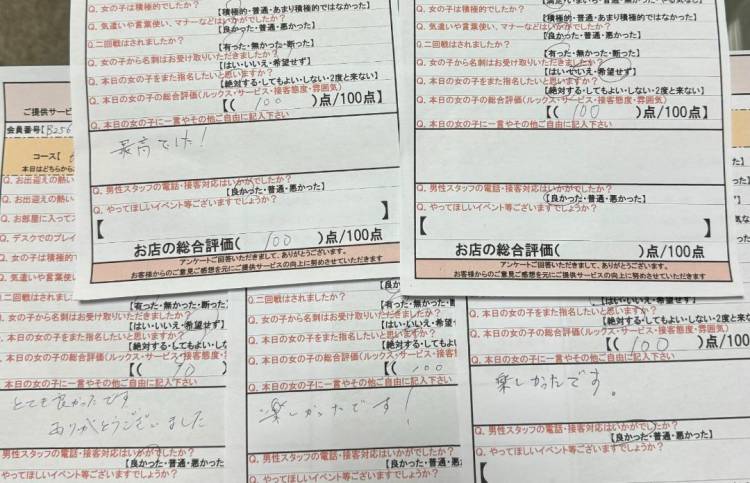 Q. 女の子は積極的でしたか？
【積極的・普通・あまり積極的ではなかった】
Q. 気遣いや言葉使い、マナーなどはいかがでしたか？
【良かった・普通・悪かった】
Q. 二回戦はされましたか？
【有った・無かった・断った】
Q. 女の子から名刺はお受け取りいただきましたか？
【はい・いいえ・希望せず】
Q. 本日の女の子をまた指名したいと思いますか？
【絶対する・してもよい・しない・2度と来ない】
Q. 本日の女の子の総合評価(ルックス・サービス・接客態度・雰囲気)
【( 100 )点/100点】
Q. 本日の女の子に一言やその他ご自由に記入下さい
最高でした!
Q. 男性スタッフの電話・接客対応はいかがでしたか？
【良かった・普通・悪かった】
Q. やってほしいイベント等ございますでしょうか？
【 】
お店の総合評価( 100 )点/100点
アンケートご回答いただきまして、ありがとうございます。
お客様からのご意見ご感想を元にご提供サービスの向上に努めさせていただきます
Q. 女の子は積極的でしたか？
【積極的・普通・あまり積極的ではなかった】
Q. 気遣いや言葉使い、マナーなどはいかがでしたか？
【良かった・普通・悪かった】
Q. 二回戦はされましたか？
【有った・無かった・断った】
Q. 女の子から名刺はお受け取りいただきましたか？
【はい・いいえ・希望せず】
Q. 本日の女の子をまた指名したいと思いますか？
【絶対する・してもよい・しない・2度と来ない】
Q. 本日の女の子の総合評価(ルックス・サービス・接客態度・雰囲気)
【( 100 )点/100点】
Q. 本日の女の子に一言やその他ご自由に記入下さい
Q. 男性スタッフの電話・接客対応はいかがでしたか？
【良かった・普通・悪かった】
Q. やってほしいイベント等ございますでしょうか？
【 】
お店の総合評価( )点/100点
アンケートご回答いただきまして、ありがとうございます。
お客様からのご意見ご感想を元にご提供サービスの向上に努めさせていただきます
ご提供サービ
会員番号【
コース【
本日はどちらから
Q. お出迎えの熱い
Q. お出迎えの熱い
Q. お部屋に入ってス
Q. デスクでのプレイ
Q. 女の子は積極的
Q. 気遣いや言葉使い、
Q. 二回戦はされましたか？
【有った・無かった・断った】
Q. 女の子から名刺はお受け取りいただ
【はい・いいえ・希望せず】
Q. 本日の女の子をまた指名したいと思いますか？
【絶対する・してもよい・しな
Q. 本日の女の子の総合評価(ルックス・サービス・接客態度・
【( 90
Q. 本日の女の子に一言やその他ご自由に記入下さい
とても良かったです
ありがとうございました
男性スタッフの電話・接客対応はいかがでしたか？
【良かった・普通・悪かった】
やってほしいイベント等ございますでしょうか？
【良かった・普通・悪
Q. 二回戦はされましたか？
【有った・無かった・断
Q. 女の子から名刺はお受け取りいただきましたか？
【はい・いいえ・希望せ
Q. 本日の女の子をまた指名したいと思いますか？
【絶対する・してもよい・し
Q. 本日の女の子の総合評価(ルックス・サービス・
【( 100
Q. 本日の女の子に一言やその他ご自由に記入下さい
楽しかったです!
Q. 男性スタッフの電話・接客対応はいかがでしたか？
【良かった・普通・悪か
Q. やってほしいイベント等ございますでしょうか？
【はい・いいえ・希望せず】
Q. 本日の女の子をまた指名したいと思いますか？
【絶対する・してもよい・しない・2度と来ない】
Q. 本日の女の子の総合評価(ルックス・サービス・接客態度・雰囲気)
【( 100 )点/100点】
Q. 本日の女の子に一言やその他ご自由に記入下さい
楽しかったです。
Q. 男性スタッフの電話・接客対応はいかがでしたか？
【良かった・普通・悪かった】
Q. やってほしいイベント等ございますでしょうか？
【